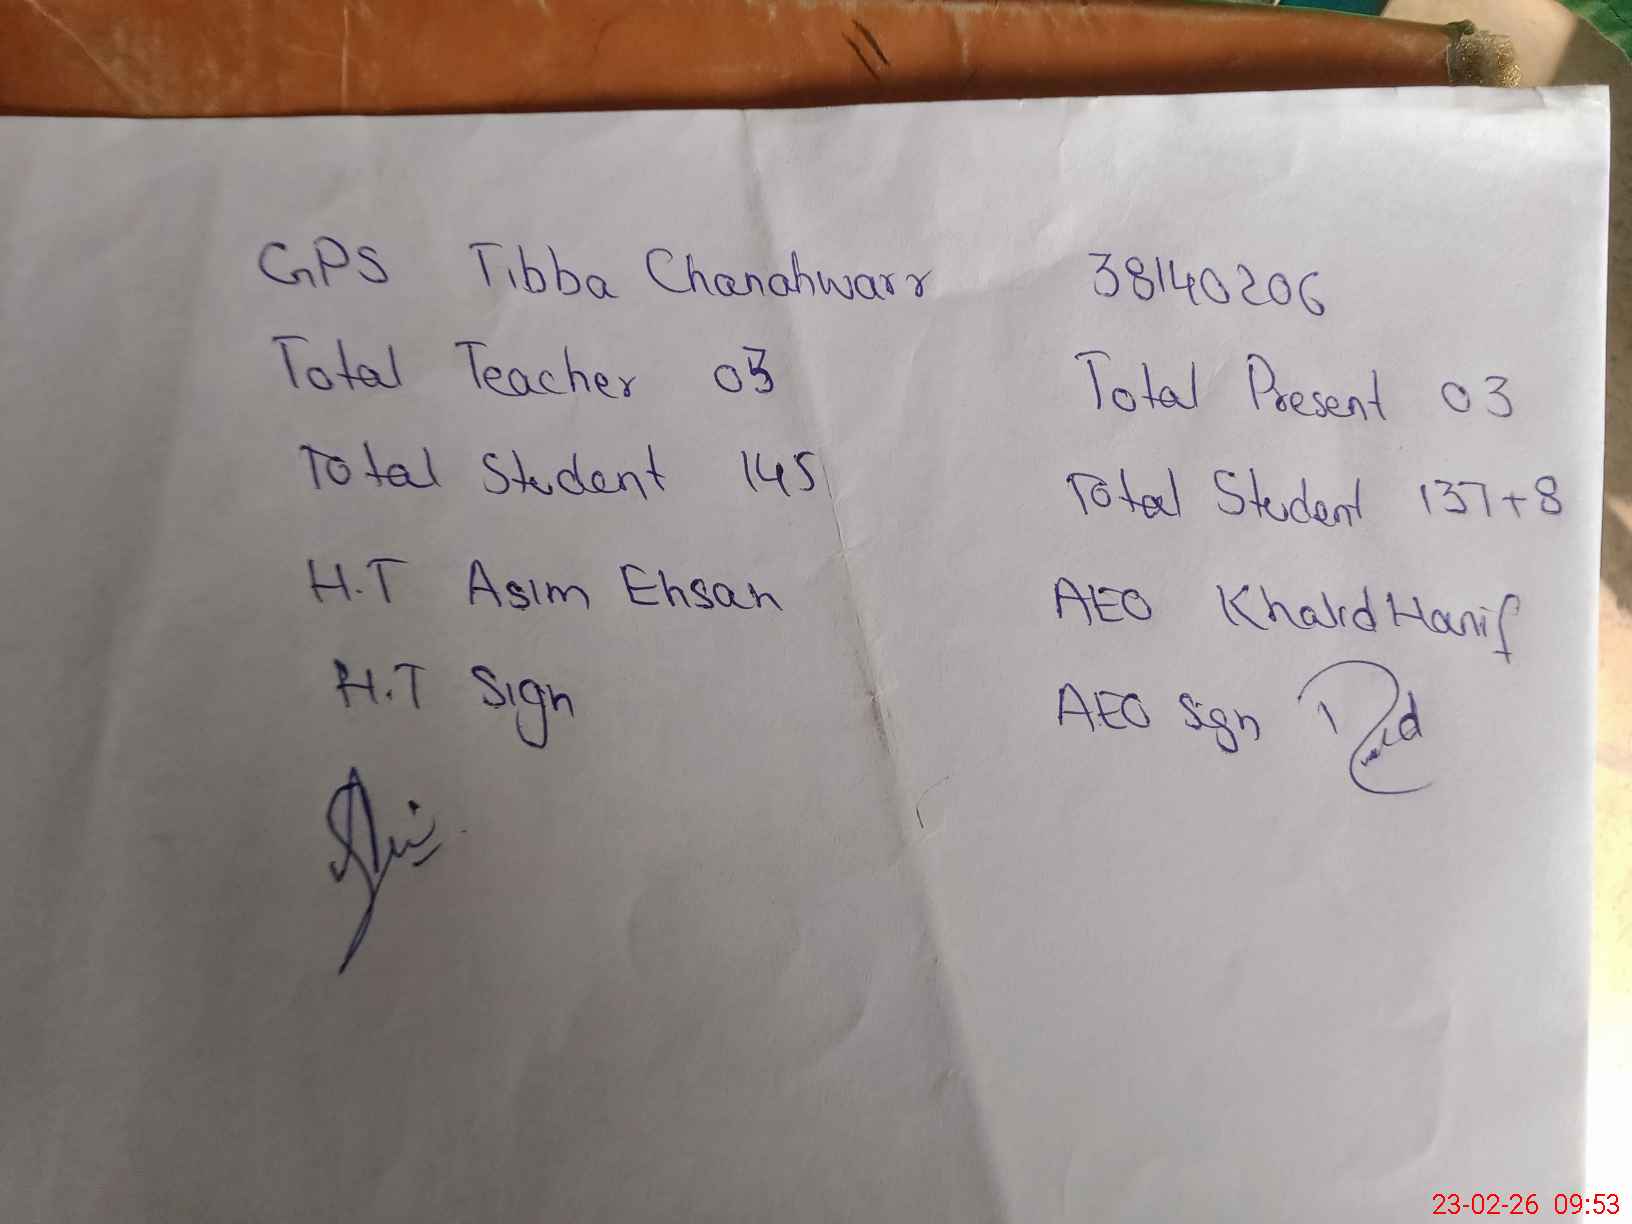 GPS Tibba Chanahwarr 38140206
Total Teacher 03 Total Present 03
Total Student 145 Total Student 137+8
H.T Asim Ehsan AEO Khalid Hanif
H.T Sign AEO Sign
23-02-26 09:53